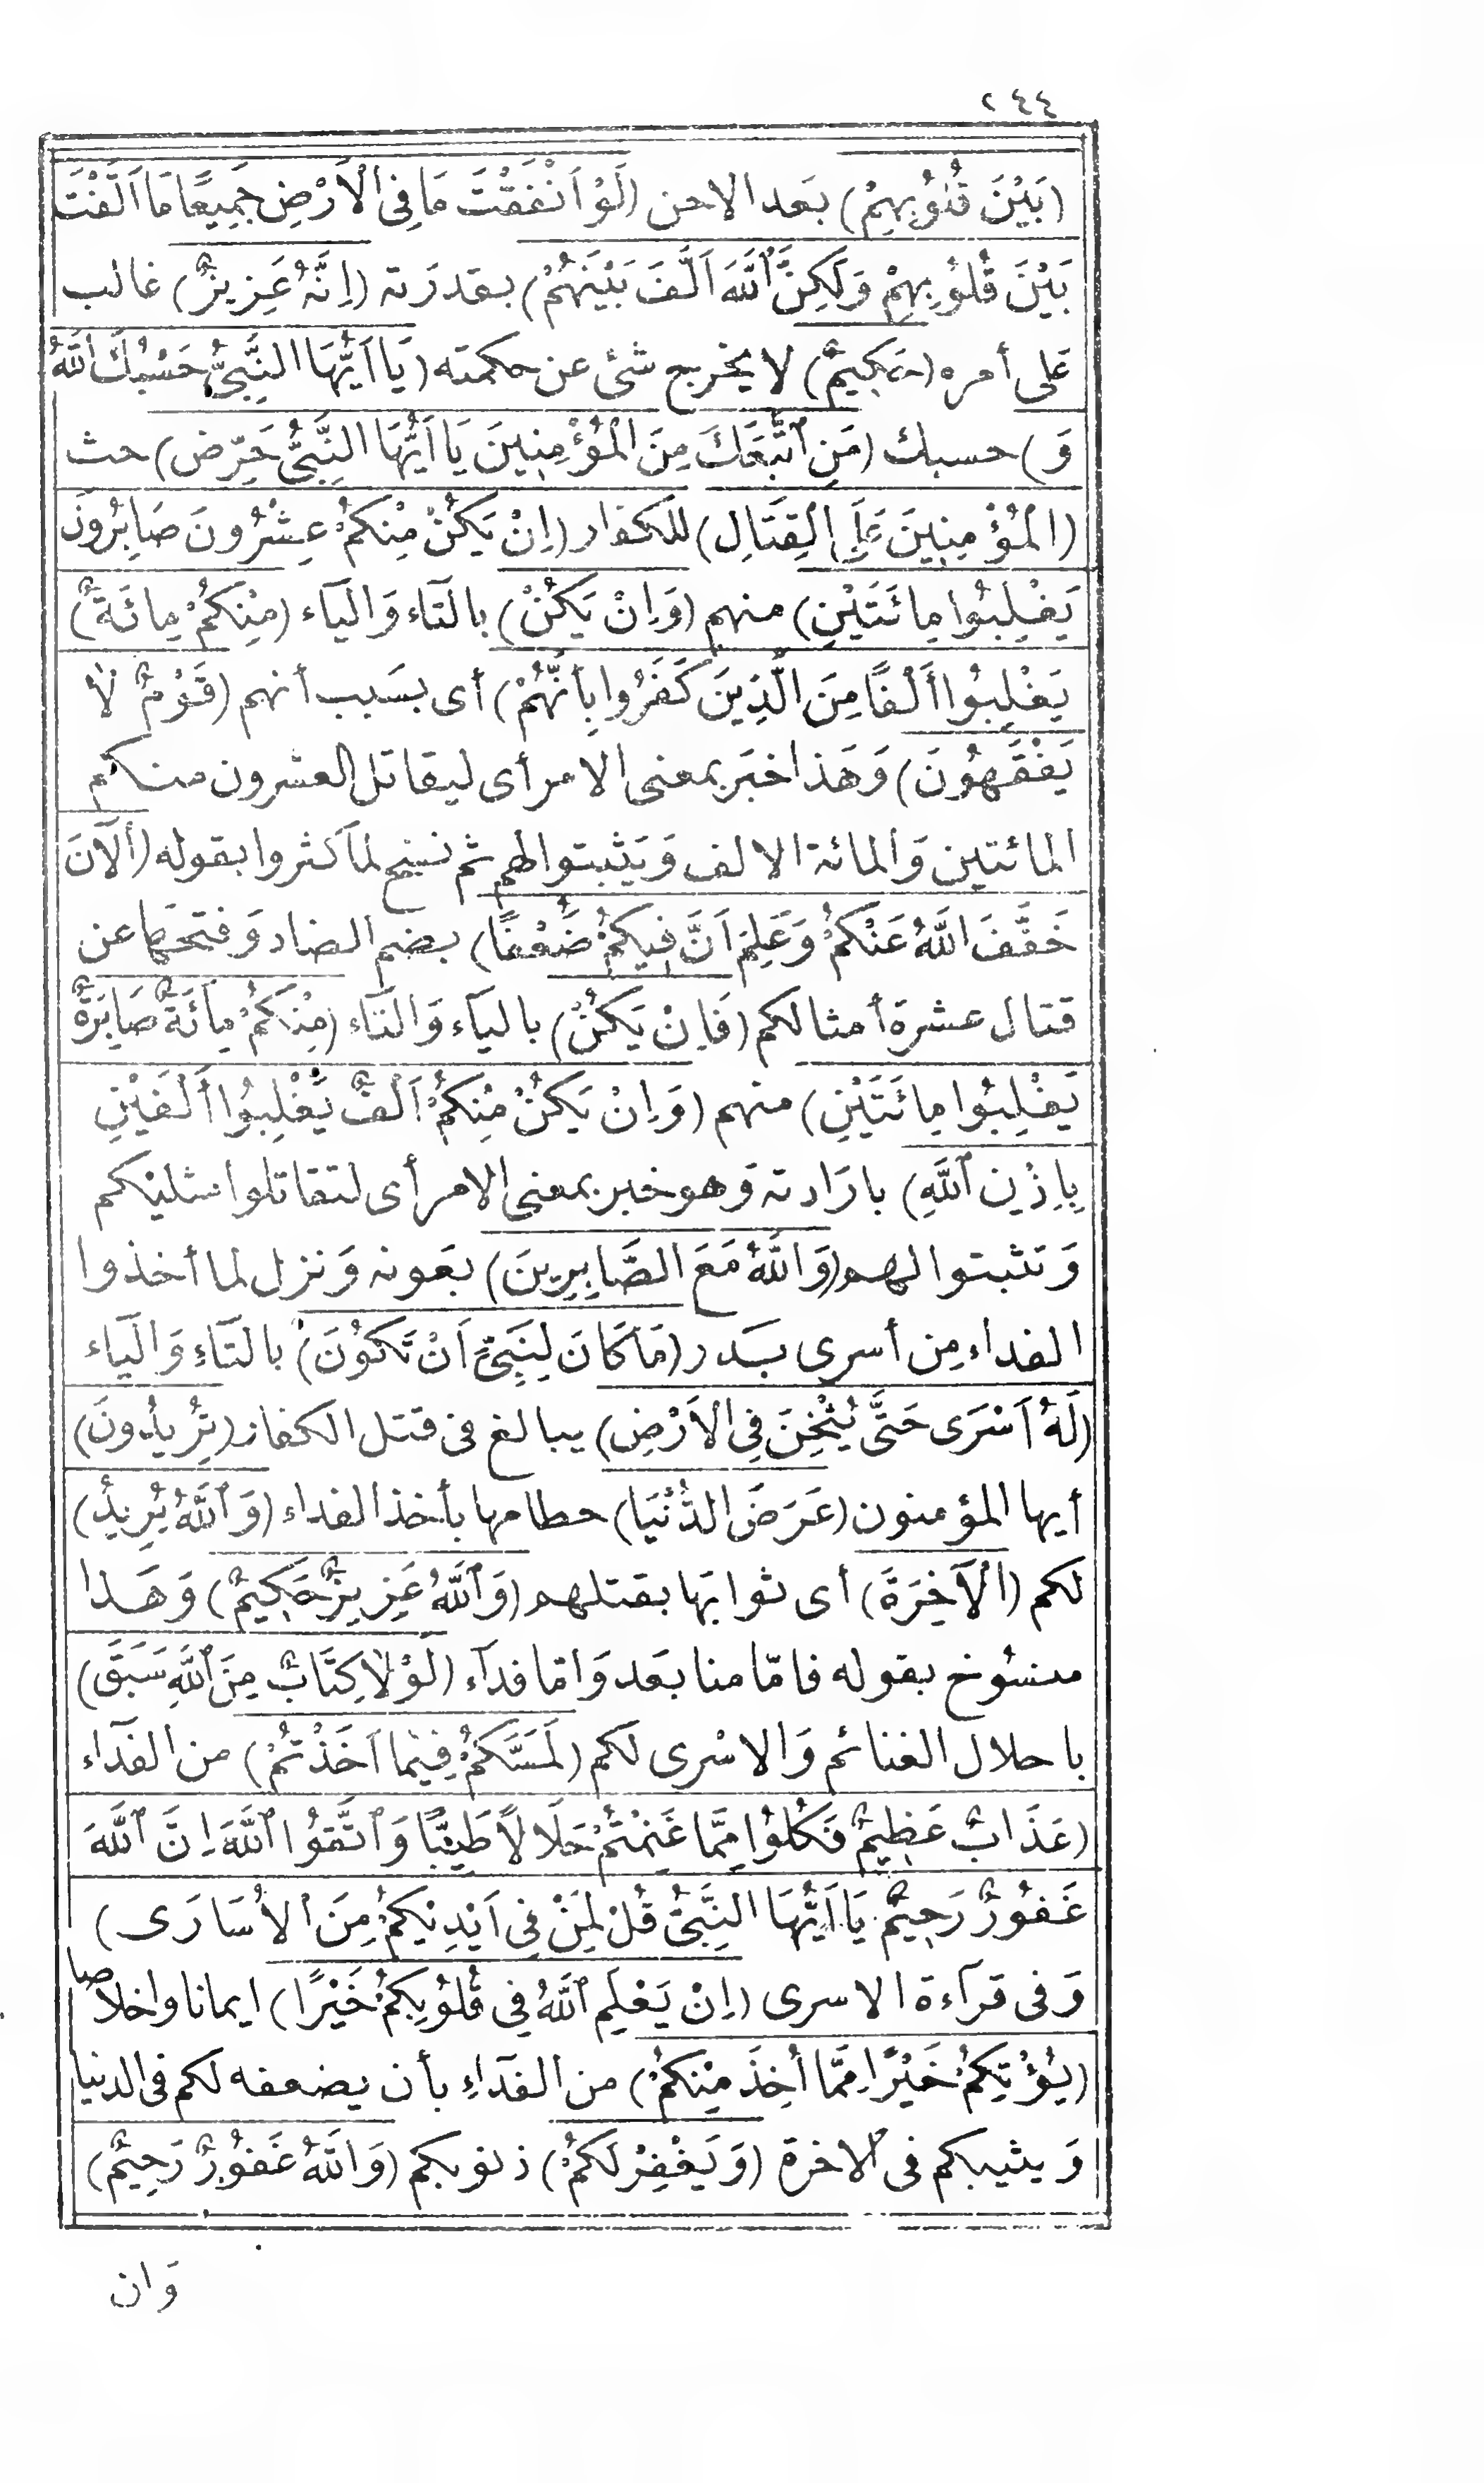 ٢٤٤
(بَيْنَ قُلُوبِهِمْ) بَعد الاحن (لَوْ اَنْفَقْتَ مَا فِى الْاَرْضِ جَمِيعًا مَا اَلَّفْتَ
بَيْنَ قُلُوبِهِمْ وَلَكِنَّ ٱللَّهَ اَلَّفَ بَيْنَهُمْ) بقدرَته (اِنَّهُ عَزِيزٌ) غالب
عَلى أمره (حَكِيمٌ) لا يخرج شئ عن حكمته (يَا اَيُّهَا النَّبِىُّ حَسْبُكَ ٱللَّهُ
وَ) حسبك (مَنِ ٱتَّبَعَكَ مِنَ الْمُؤْمِنِينَ يَا اَيُّهَا النَّبِىُّ حَرِّضِ) حث
(الْمُؤْمِنِينَ عَلَى الْقِتَالِ) للكفار (اِنْ يَكُنْ مِنْكُمْ عِشْرُونَ صَابِرُونَ
يَغْلِبُوا مِائَتَيْنِ) منهم (وَاِنْ يَكُنْ) بالتَاء وَاليَاء (مِنْكُمْ مِائَةٌ)
يَغْلِبُوا أَلْفًا مِنَ الَّذِينَ كَفَرُوا بِأَنَّهُمْ) أى بسَبب أنهم (قَوْمٌ لَا
يَفْقَهُونَ) وَهَذا خبَر بمعنى الامر أى ليقاتل العشرون منكم
المائتين وَالمائة الالف وَيَثبتوا لهم ثم نسخ لما كثروا بقوله (اَلْآنَ
خَفَّفَ اللَّهُ عَنْكُمْ وَعَلِمَ اَنَّ فِيكُمْ ضَُعْفًا) بضم الضاد وَفتحهَا عن
قتال عشرة أمثالكم (فَاِنْ يَكُنْ) باليَآء وَالتَاء (مِنْكُمْ مِائَةٌ صَابِرَةٌ
يَغْلِبُوا مِائَتَيْنِ) منهم (وَاِنْ يَكُنْ مِنْكُمْ اَلْفٌ يَغْلِبُوا أَلْفَيْنِ
بِاِذْنِ ٱللَّهِ) بارَادته وَهو خبر بمعنى الامر أى لتقاتلوا مثليْكم
وَتثبتوا لهم (وَاللَّهُ مَعَ الصَّابِرِينَ) بعَونه وَنزل لما أخذوا
الفداء مِن أسرى بَدر (مَا كَانَ لِنَبِىٍّ اَنْ تَكُونَ) بالتَآءِ وَاليَاء
(لَهُ اَسْرَى حَتَّى يُثْخِنَ فِى الْاَرْضِ) يبالغ فى قتل الكفار (تُرِيدُونَ)
أيها المؤمنون (عَرَضَ الدُّنْيَا) حطامها بأخذ الفداء (وَٱللَّهُ يُرِيدُ)
لكم (الْآخِرَةَ) أى ثوابَها بقتلهم (وَٱللَّهُ عَزِيزٌ حَكِيمٌ) وَهَذا
منسُوخ بقوله فامّا منا بعَد وَامّا فدآء (لَوْلَا كِتَابٌ مِنَ ٱللَّهِ سَبَقَ)
باحلال الغنائم وَالاسْرى لكم (لَمَسَّكُمْ فِيمَا اَخَذْتُمْ) من الفدآء
(عَذَابٌ عَظِيمٌ فَكُلُوا مِمَّا غَنِمْتُمْ حَلَالًا طَيِّبًا وَٱتَّقُوا ٱللَّهَ اِنَّ ٱللَّهَ
غَفُورٌ رَحِيمٌ يَا اَيُّهَا النَّبِىُّ قُلْ لِمَنْ فِى اَيْدِيْكُمْ مِنَ الْاُسَارَى)
وَفى قرآءة الاسرى (اِنْ يَعْلَمِ ٱللَّهُ فِى قُلُوبِكُمْ خَيْرًا) ايمانا واخلاصا
(يُؤْتِكُمْ خَيْرًا مِمَّا أُخِذَ مِنْكُمْ) من الفدَآءِ بأن يضعفه لكم فى الدنيا
وَيثيبكم فى الآخرة (وَيَغْفِرْ لَكُمْ) ذنوبكم (وَاللَّهُ غَفُورٌ رَحِيمٌ)
وَان